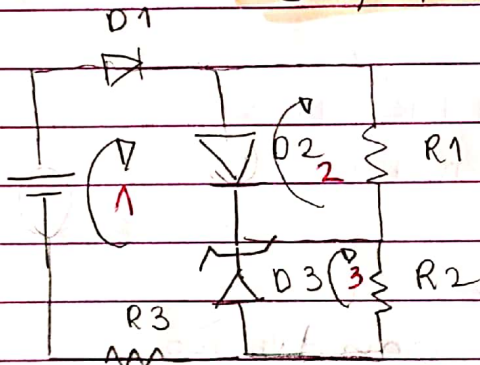 D1
D2
2
R1
1
D3
3
R2
R3